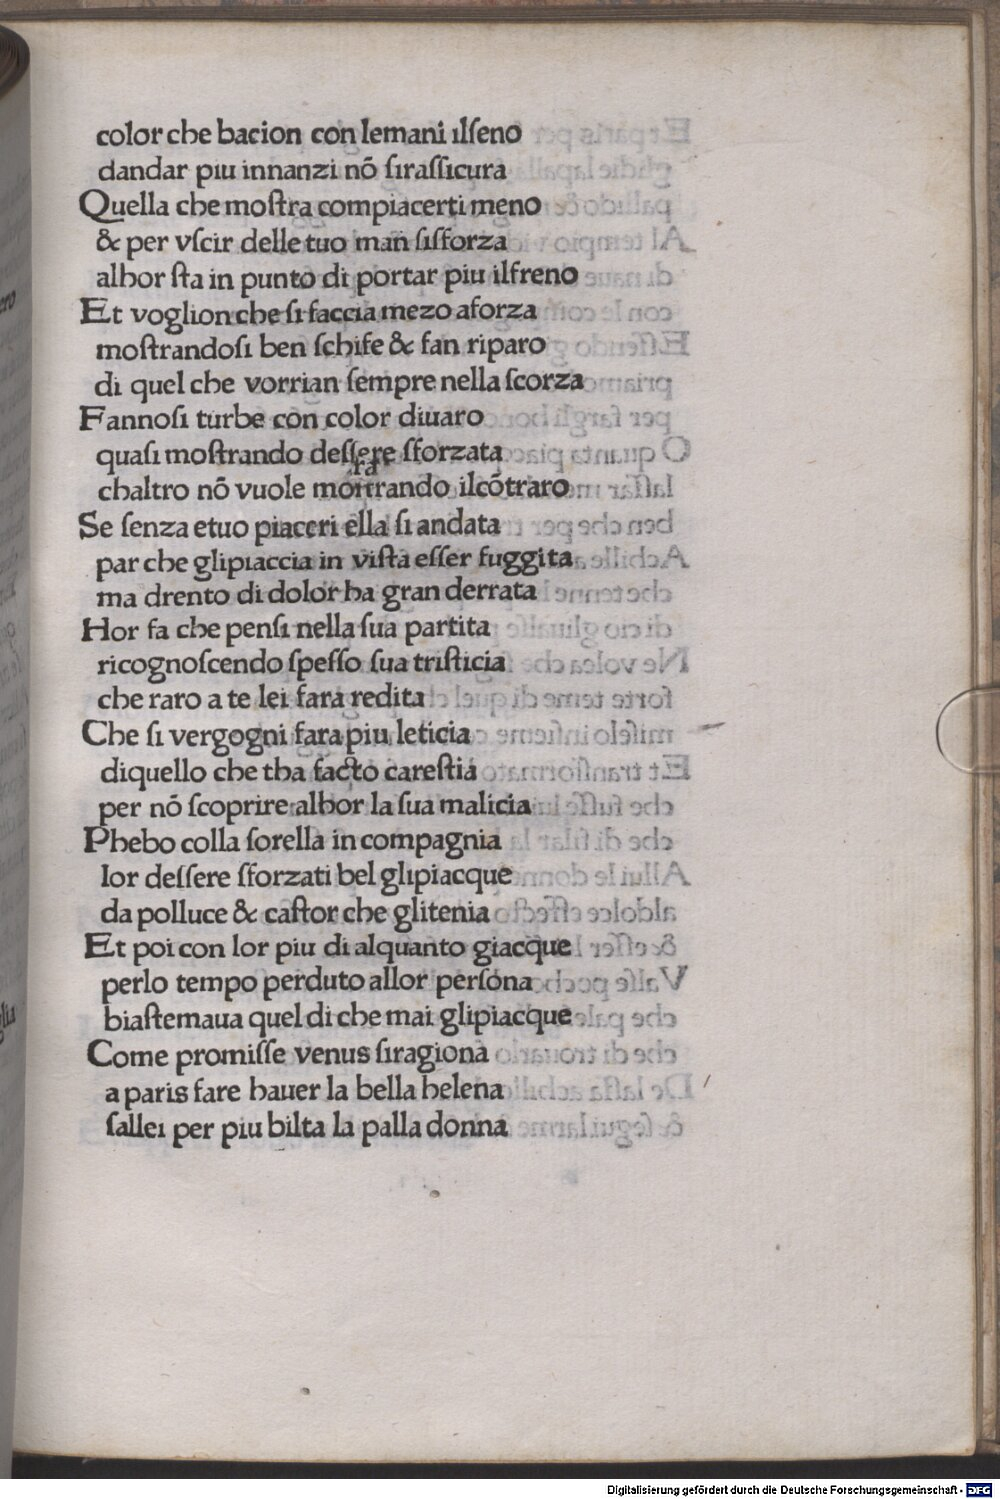 color che bacion con lemani ilſeno
dandar piu innanzi nō ſiraſſicura
Quella che moſtra compiacerti meno
& per vſcir delle tuo man ſisforza
alhor ſta in punto di portar piu ilfreno
Et voglion che ſi faccia mezo aforza
moſtrandoſi ben ſchife & fan riparo
di quel che vorrian ſempre nella ſcorza
Fannoſi turbe con color diuaro
quaſi moſtrando deſſere ſforzata
chaltro nō vuole moſtrando ilcōtraro
Se ſenza etuo piaceri ella ſi andata
par che glipiaccia in viſta eſſer fuggita
ma drento di dolor ha gran derrata
Hor fa che penſi nella ſua partita
ricognoſcendo ſpeſſo ſua triſticia
che raro a te lei fara redita
Che ſi vergogni fara piu leticia
diquello che tha facto careſtia
per nō ſcoprire alhor la ſua malicia
Phebo colla ſorella in compagnia
lor deſſere ſforzati bel glipiacque
da polluce & caſtor che glitenia
Et poi con lor piu di alquanto giacque
perlo tempo perduto allor perſona
biaſtemaua quel di che mai glipiacque
Come promiſſe venus ſiragiona
a paris fare hauer la bella helena
ſallei per piu bilta la palla donna
Digitalisierung gefördert durch die Deutsche Forschungsgemeinschaft - DFG